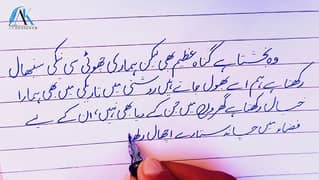 وہ بخشتا ہے گناہ عظیم بھی لیکن ہماری چھوٹی سی نیکی سنبھال
رکھتا ہے ہم اسے بھول جاتے ہیں روشنی میں تاریکی میں بھی ہمارا
خیال رکھتا ہے گھر میں جن کے دیا بھی نہیں، ان کے لیے
فضاء میں چاند ستارے اچھال رکھ